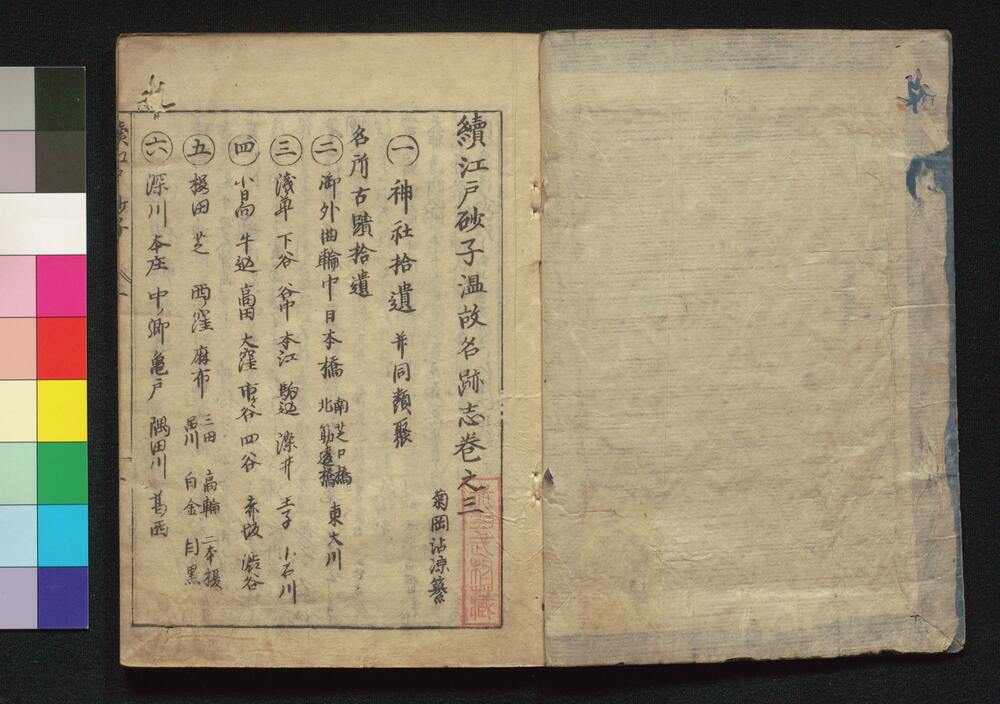 續江戸砂子温故名跡志巻之三
菊岡沾凉纂
一 神社拾遺 并同類聚
名所古蹟拾遺
二 御外曲輪中 日本橋 南芝口橋 北筋違橋 東大川
三 浅草 下谷 谷中 本江 駒込 染井 王子 小石川
四 小日向 牛込 高田 大窪 市谷 四谷 赤坂 渋谷
五 桜田 芝 西ノ窪 麻布 三田 品川 高輪 白金 二本榎 目黒
六 深川 本庄 中ノ郷 亀戸 隅田川 葛西